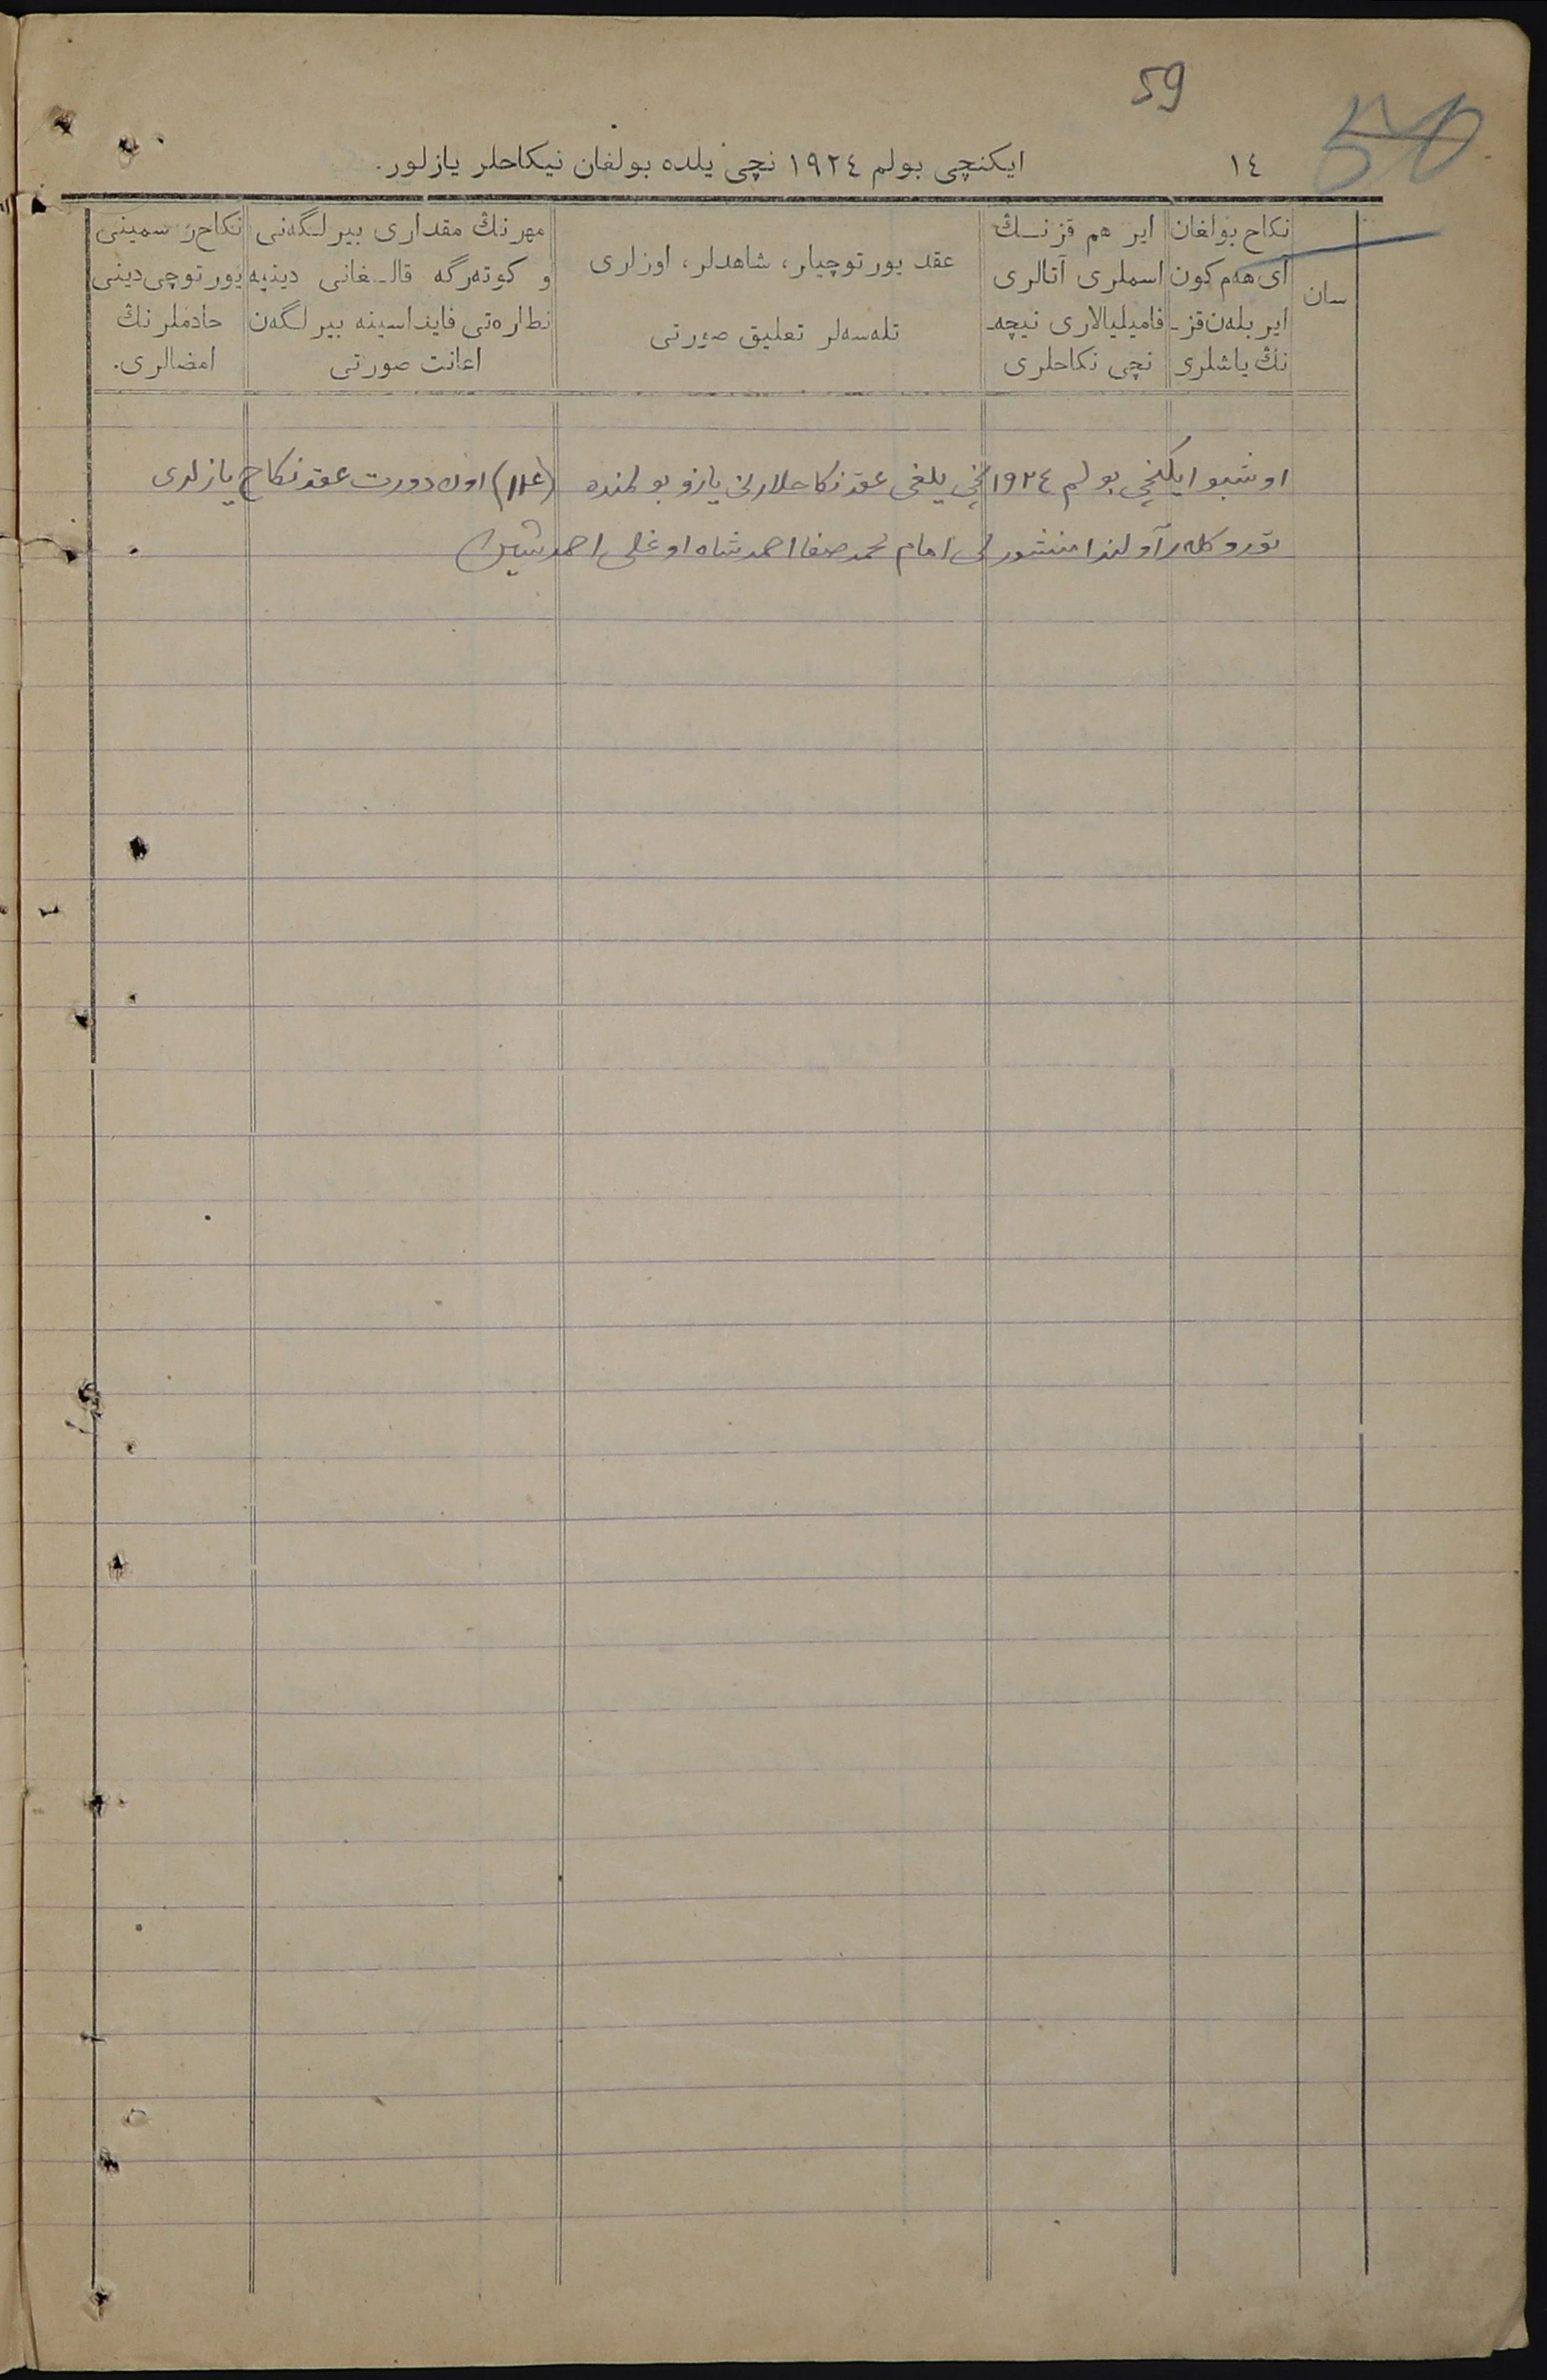 59
50
١٤
ايكنچی بولم ١٩٢٤ نچی يلده بولغان نيكاحلر يازلور.
سان
نكاح بولغان
آی هەم كون
اير بلەن قز ـ
نڭ ياشلری
اير هم قزنــڭ
اسملری آتالری
فاميليالاری نيچەـ
نچی نكاحلری
عقد يورتوچيلر، شاهدلر، اوزلری
تلەسەلر تعليق صورتی
مهرنڭ مقداری بيرلــگەنی
و كوتەرگە قالــغانی دينيە
نظارەتی فايداسينه بيرلــگەن
اعانت صورتی
نكاح رسمينی
يورتوچی دينی
خادملرنڭ
امضالری.
اوشبو ايكنچی بولم ١٩٢٤ نچی يلغی عقد نكاحلارنی يازو بولمنده (١٤) اون دورت عقد نكاح يازلدی
امام محمد صفا احمدشاه اوغلی